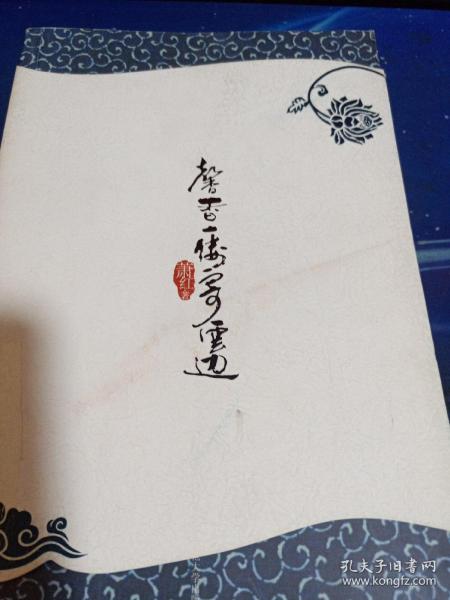 馨香一缕寄云边
萧红 著
孔夫子旧书网
www.kongfz.com